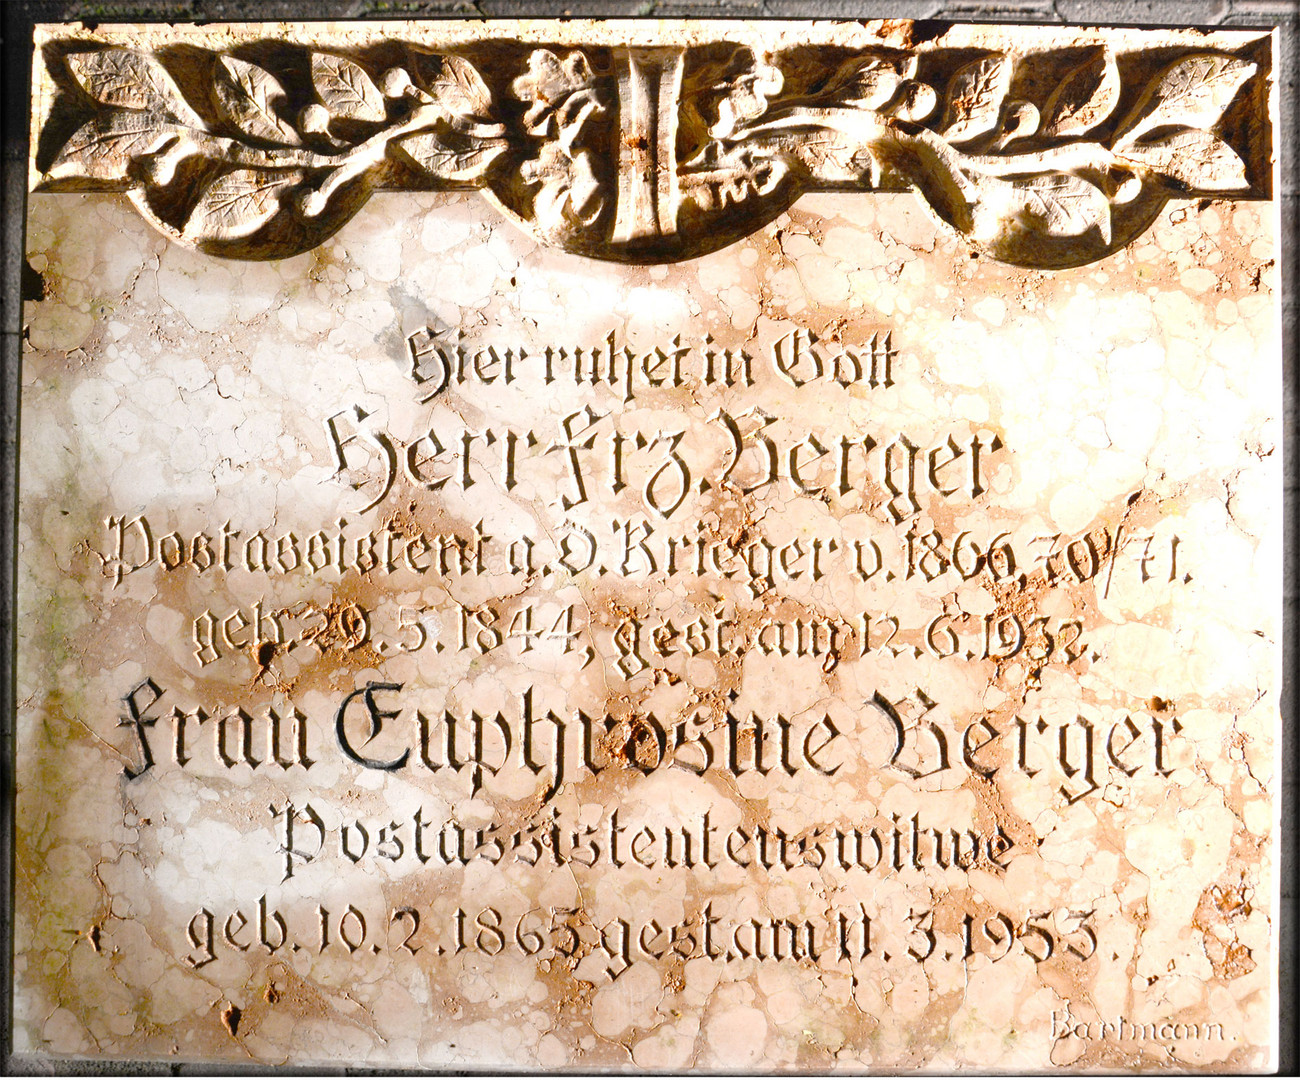 Hier ruhet in Gott
Herr Frz. Berger
Postassistent a. D. Krieger v. 1866, 70/71.
geb. 29. 5. 1844, gest. am 12. 6. 1932.
Frau Euphrosine Berger
Postassistentenswitwe
geb. 10. 2. 1865 gest. am 11. 3. 1953.
Bartmann.